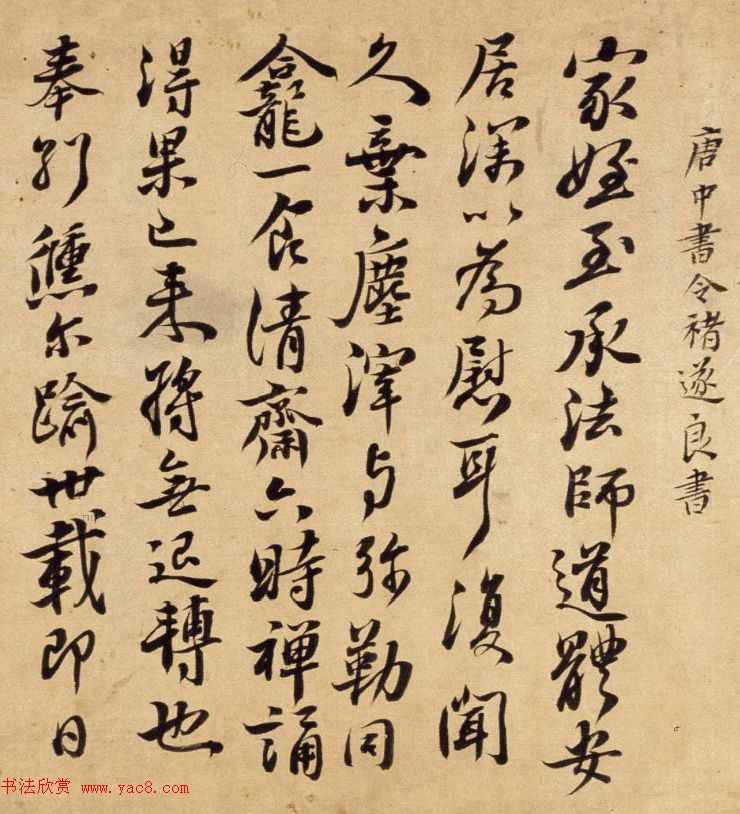 唐中書令褚遂良書
家姪至承法師道體安
居深以為慰耳復聞
久棄塵滓与弥勒同
龕一食清齋六時禅誦
得果已来将無退轉也
奉別倐尔踰卅載即日
书法欣赏 www.yac8.com